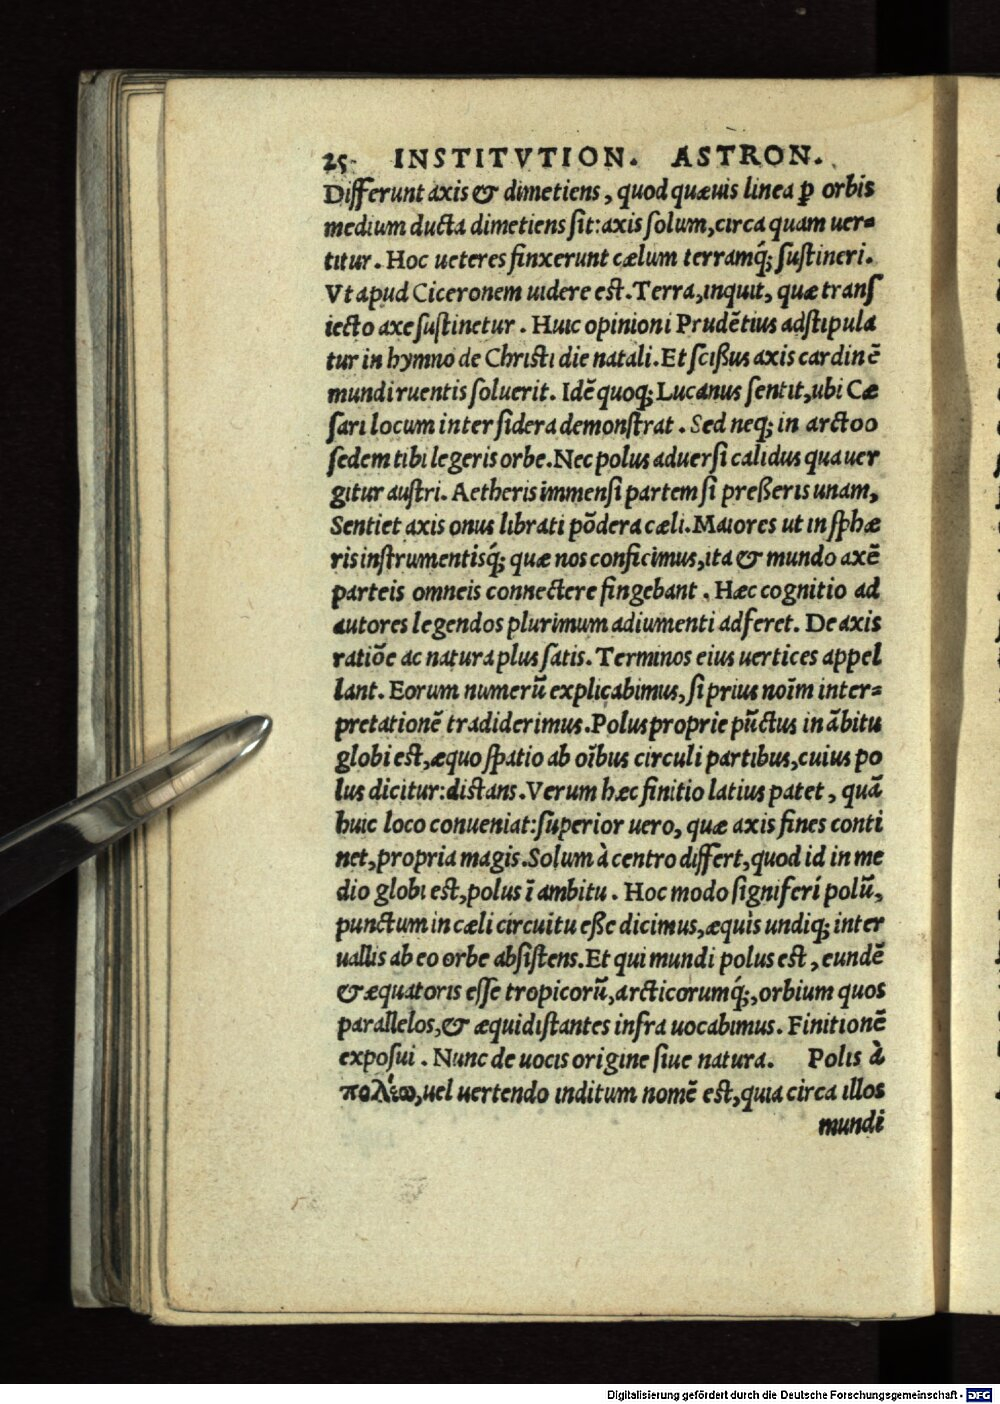 25 INSTITVTION. ASTRON.
Differunt axis & dimetiens, quod quæuis linea ꝑ orbis
medium ducta dimetiens sit: axis solum, circa quam uer=
titur. Hoc ueteres finxerunt cælum terramq́; sustineri.
Vt apud Ciceronem uidere est. Terra, inquit, quæ trans
iecto axe sustinetur. Huic opinioni Prudẽtius adstipula
tur in hymno de Christi die natali. Et scißus axis cardinẽ
mundi ruentis soluerit. Idẽ quoq; Lucanus sentit, ubi Cæ
sari locum inter sidera demonstrat. Sed neq; in arctoo
sedem tibi legeris orbe. Nec polus aduersi calidus qua uer
gitur austri. Aetheris immensi partem si preßeris unam,
Sentiet axis onus librati põdera cæli. Maiores ut in sphæ
ris instrumentisq́; quæ nos conficimus, ita & mundo axẽ
parteis omneis connectere fingebant. Hæc cognitio ad
autores legendos plurimum adiumenti adferet. De axis
ratiõe ac natura plus satis. Terminos eius uertices appel
lant. Eorum numerũ explicabimus, si prius noĩm inter=
pretationẽ tradiderimus. Polus proprie pũctus in ãbitu
globi est, æquo spatio ab oĩbus circuli partibus, cuius po
lus dicitur: distans. Verum hæc finitio latius patet, quã
huic loco conueniat: superior uero, quæ axis fines conti
net, propria magis. Solum à centro differt, quod id in me
dio globi est, polus ĩ ambitu. Hoc modo signiferi polũ,
punctum in cæli circuitu eße dicimus, æquis undiq; inter
uallis ab eo orbe absistens. Et qui mundi polus est, eundẽ
& æquatoris esse tropicorũ, arcticorumq́;, orbium quos
parallelos, & æquidistantes infra uocabimus. Finitionẽ
exposui. Nunc de uocis origine siue natura. Polis à
πολέω, uel uertendo inditum nomẽ est, quia circa illos
mundi
Digitalisierung gefördert durch die Deutsche Forschungsgemeinschaft - DFG